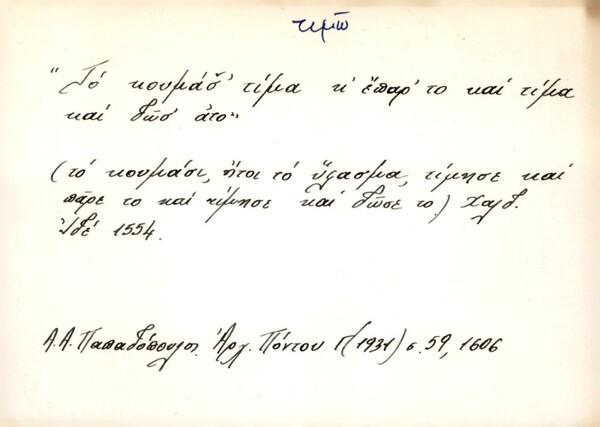 τιμῶ
"Τό κουμάσ̌' τίμα κ' ἔπαρ' το καί τίμα
καί δῶσ' ἀτο"
(τό κουμάσι, ἤτοι τό ὕφασμα, τίμησε καί
πᾶρε το καί τίμησε καί δῶσε το) Χαλδ.
Ἰδέ 1554.
Α.Α. Παπαδόπουλος. Ἀρχ. Πόντου Γ (1931) σ. 59, 1606